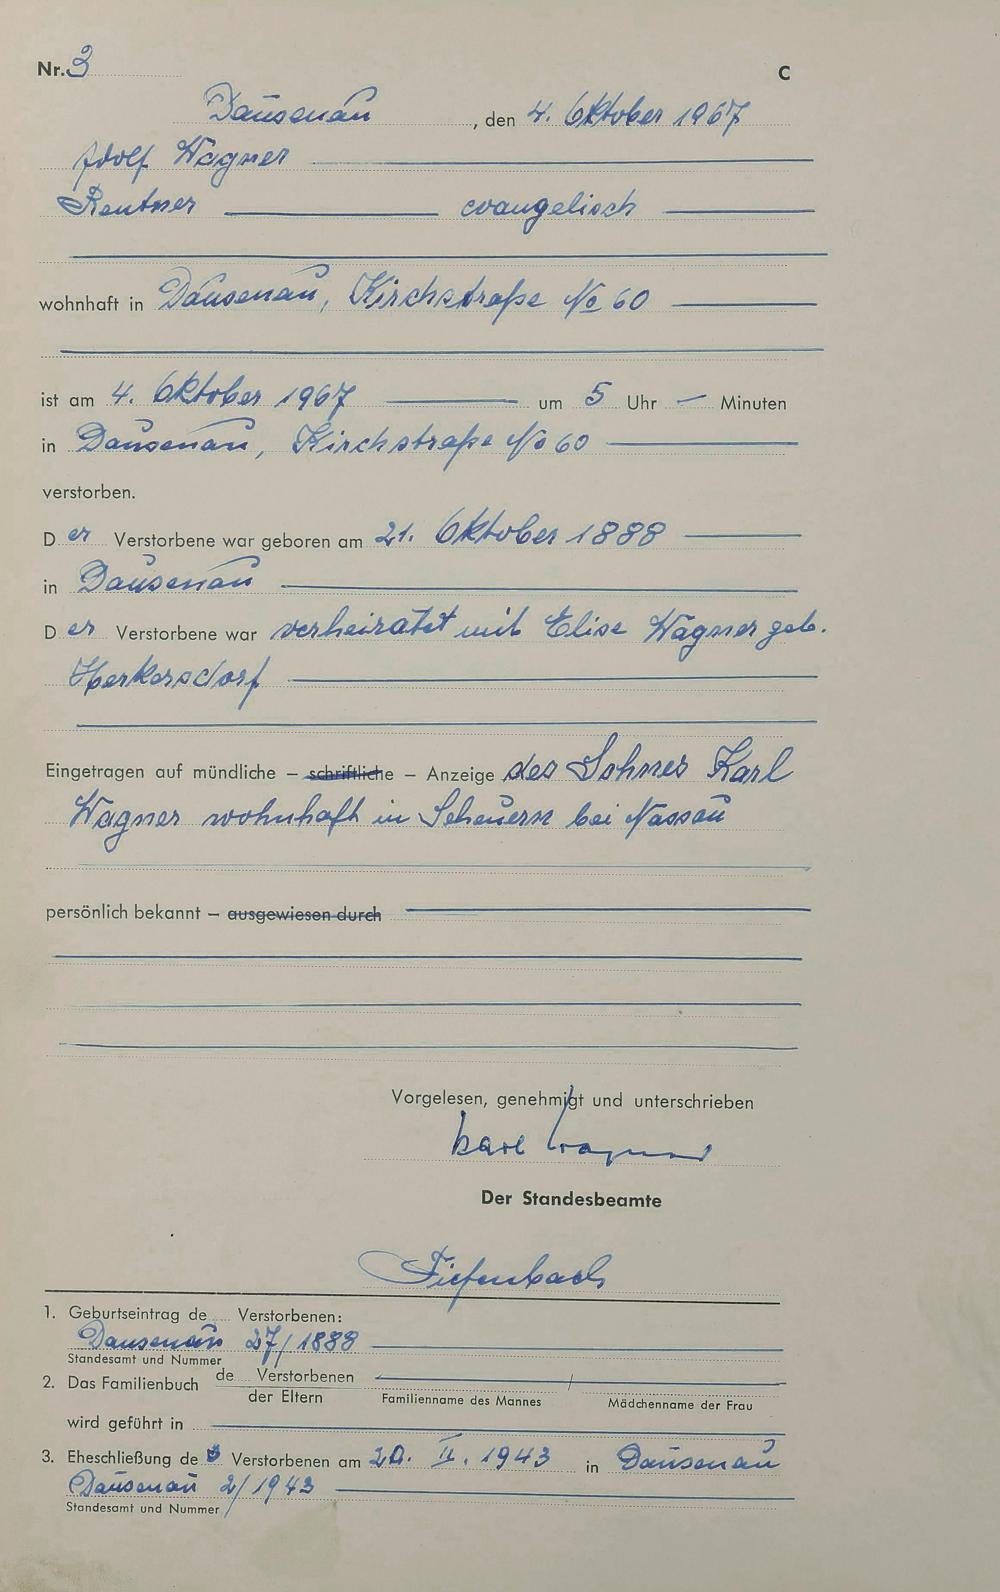 Nr. 3 C
Dausenau, den 4. Oktober 1967
Adolf Wagner
Rentner evangelisch
wohnhaft in Dausenau, Kirchstraße No 60
ist am 4. Oktober 1967 um 5 Uhr — Minuten
in Dausenau, Kirchstraße No 60
verstorben.
D er Verstorbene war geboren am 21. Oktober 1888
in Dausenau
D er Verstorbene war verheiratet mit Elise Wagner geb.
Herkersdorf
Eingetragen auf mündliche – schriftliche – Anzeige des Sohnes Karl
Wagner wohnhaft in Scheuern bei Nassau
persönlich bekannt – ausgewiesen durch
Vorgelesen, genehmigt und unterschrieben
Karl Wagner
Der Standesbeamte
Tiefenbach
1. Geburtseintrag de Verstorbenen:
Dausenau 27/1888
Standesamt und Nummer
2. Das Familienbuch de Verstorbenen
der Eltern Familienname des Mannes Mädchenname der Frau
wird geführt in
3. Eheschließung des Verstorbenen am 20. II. 1943 in Dausenau
Dausenau 2/1943
Standesamt und Nummer